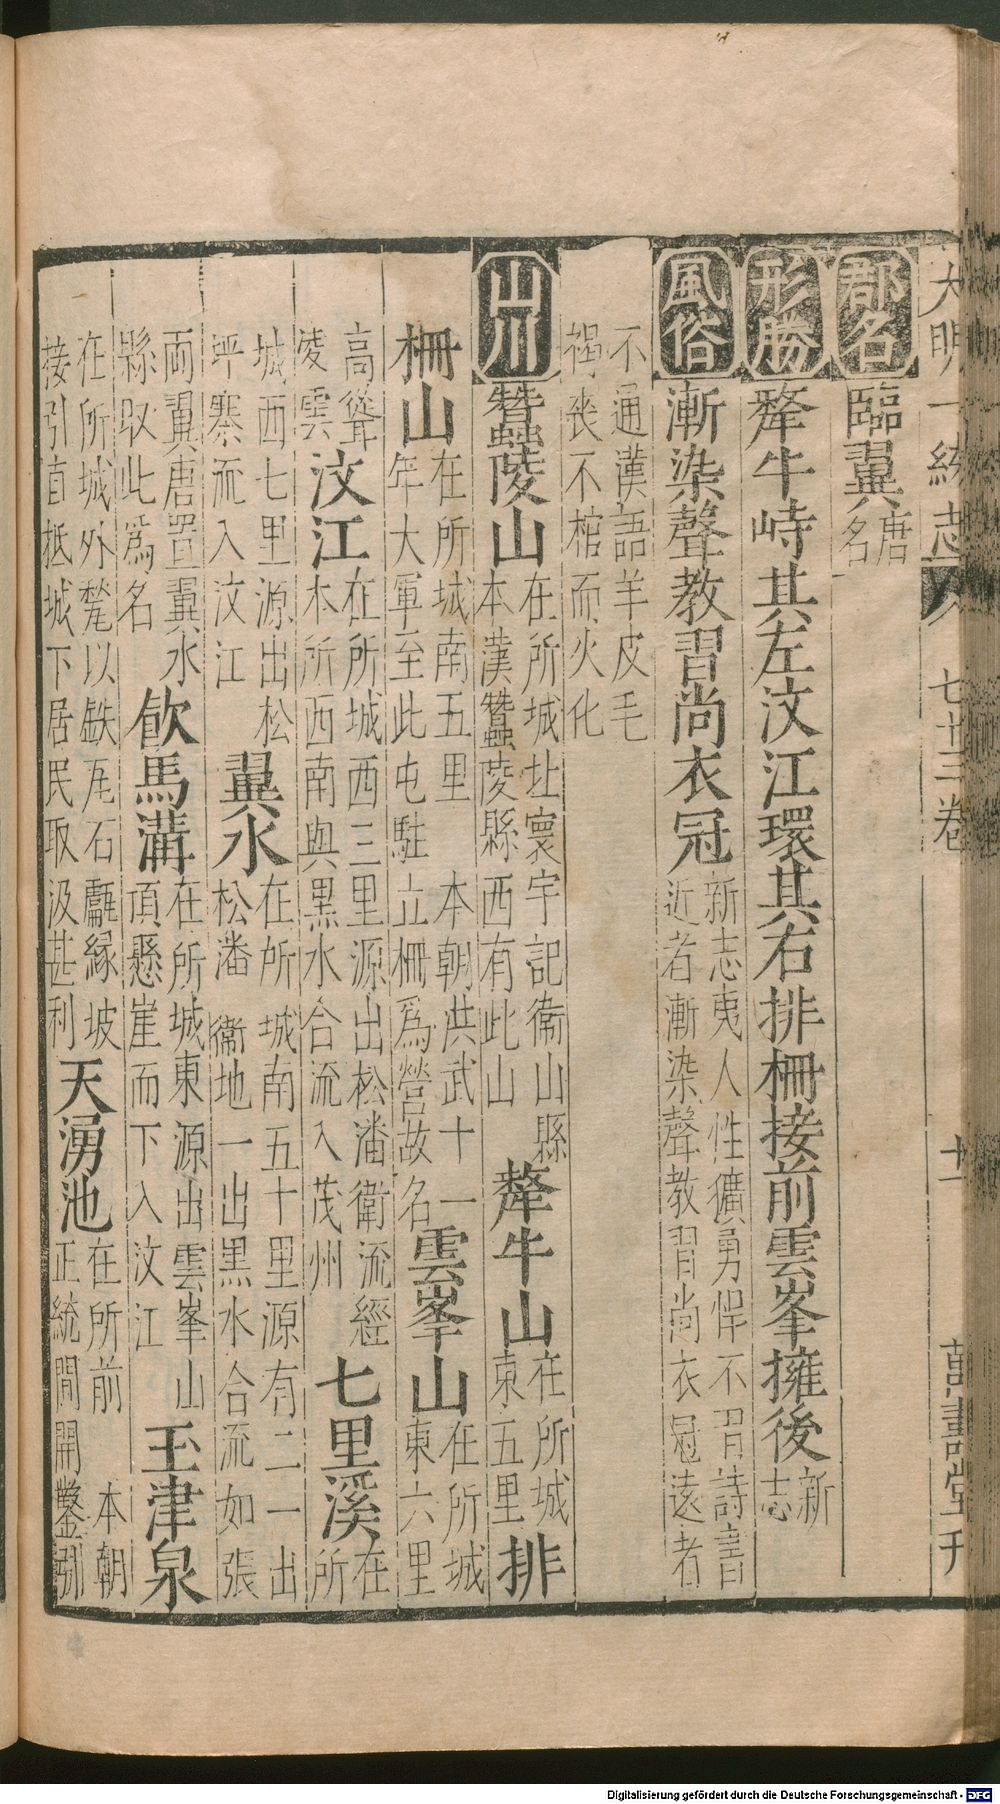 大明一統志 七十三卷 十一 萬壽堂刊
郡名 臨翼唐名
形勝 犛牛峙其左汶江環其右排柵接前雲峯擁後新志
風俗 漸染聲教習尚衣冠新志夷人性獷勇悍不習詩書近者漸染聲教習尚衣冠遠者
不通漢語羊皮毛褐喪不棺而火化
山川 蠶陵山在所城北寰宇記衛山縣本漢蠶陵縣西有此山 犛牛山在所城東五里 排
柵山在所城南五里 本朝洪武十一年大軍至此屯駐立柵爲營故名 雲峯山在所城東六里
高聳凌雲 汶江在所城西三里源出松潘衛流經木所西南與黑水合流入茂州 七里溪在所
城西七里源出松坪寨流入汶江 翼水在所城南五十里源有二一出松潘衛地一出黑水合流如張
兩翼唐置翼水縣取此爲名 飲馬溝在所城東源出雲峯山頂懸崖而下入汶江 玉津泉
在所城外甃以鐵瓦石甃緣坡接引直抵城下居民取汲甚利 天湧池在所前 本朝正統間開鑿引
Digitalisierung gefördert durch die Deutsche Forschungsgemeinschaft - DFG